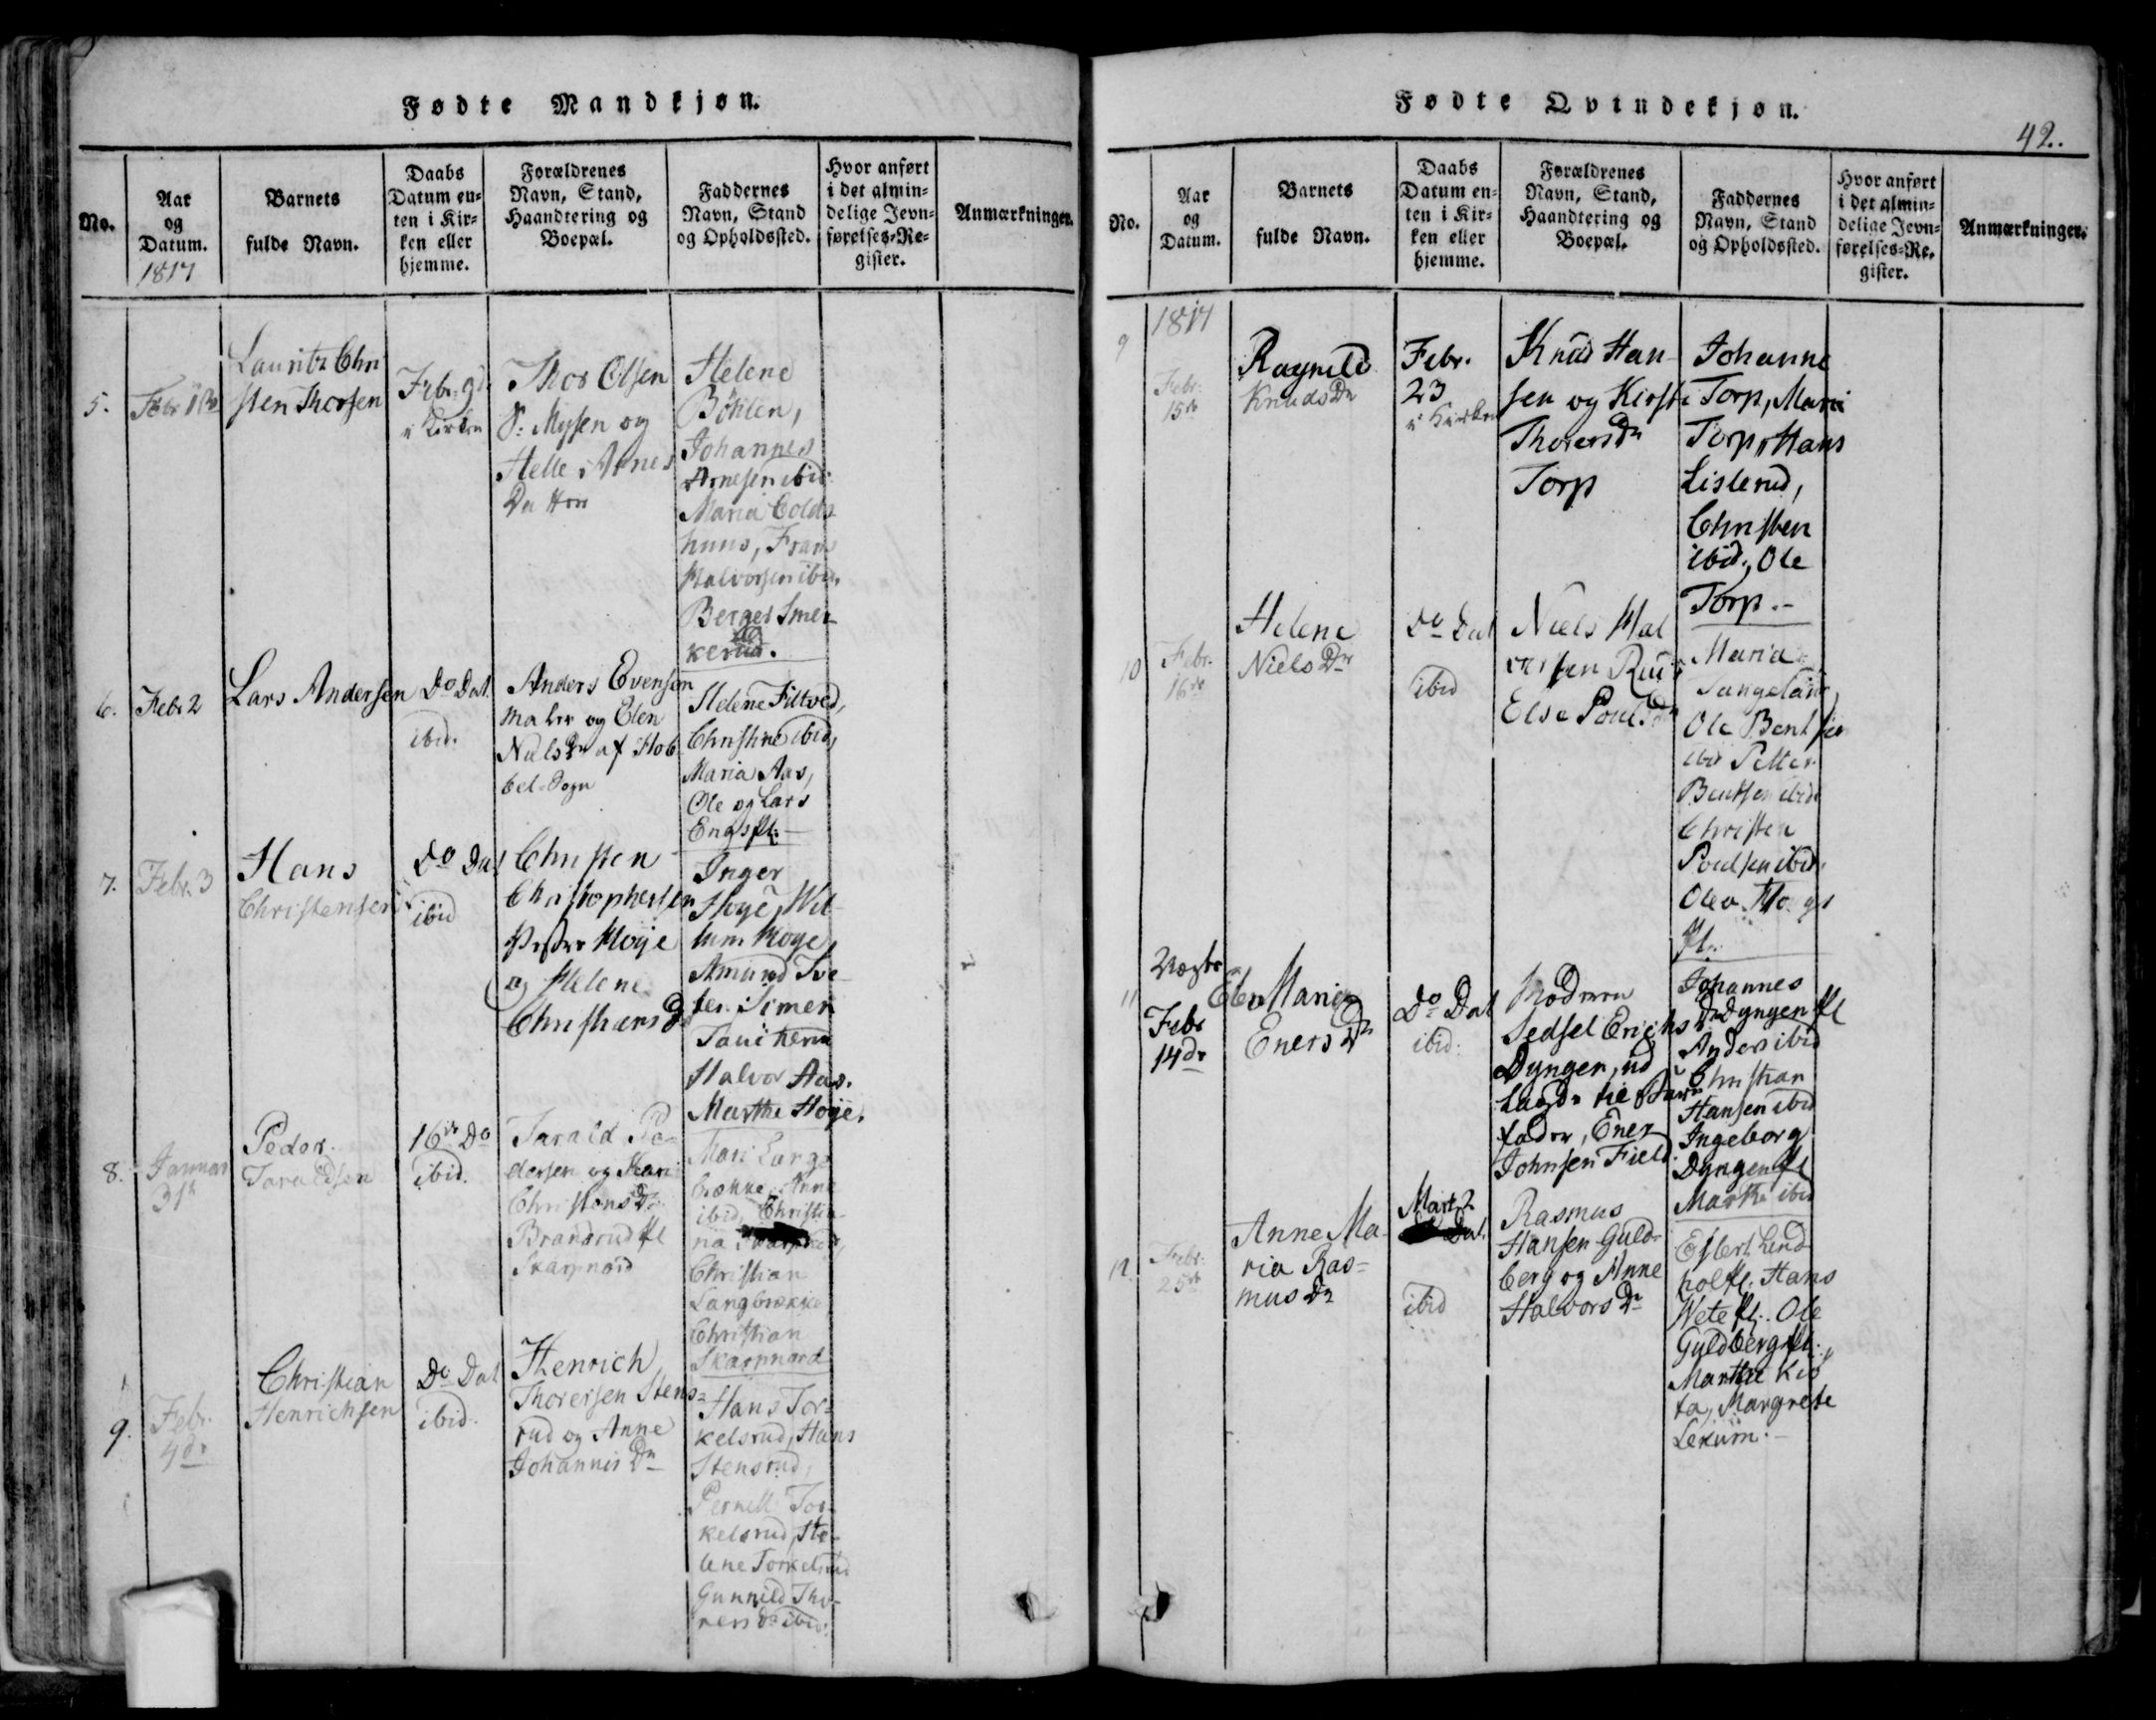 Fødte Mandkjøn.
No.
Aar
og
Datum.
1817
Barnets
fulde Navn.
Daabs
Datum en-
ten i Kir-
ken eller
hjemme.
Forældrenes
Navn, Stand,
Haandtering og
Boepæl.
Faddernes
Navn, Stand
og Opholdssted.
Hvor anført
i det almin-
delige Jevn-
førelses-Re-
gister.
Anmærkninger.
5.
Febr
Lauritz Chri
sten Thorsen
Febr. 9
i Kirken
Thor Olsen
P: Mysen og
Helle Arnes
Helene
Böhlen,
Johannes
Arnesen ibid
Maria Colds
huus, Frans
Halvorsen ibid.
Berger Smer-
kerud.
6.
Febr 2
Lars Andersen
Do Dat.
ibid.
Anders Evensen
Maler og Elen
Niels Dr af Hob
bel-Sogn
Helene Filtved,
Christine ibid,
Maria Aas,
Ole og Lars
Engs pl.
7.
Febr. 3
Hans
Christensen
Do Dat
ibid
Christen
Christophersen
Höÿe
og Helene
Christians Dr
Inger
Höye, Wil-
hum Höye,
Amund Sve
Simen
Halvor Aas.
Marthe Höye.
8.
Januar
31
Peder
Taraldsen
16de Do
ibid.
Tarald Pe-
dersen og Kari
Christens Dr
Brandrud pl
Skarpnord
Mari Lang
brække, Anne
ibid, Christia-
na
Christian
Langbrække
Christian
Skarpnord
9.
Febr.
4de
Christian
Henrichsen
Do Dat
ibid.
Henrich
Thorersen Stens-
rud og Anne
Johannis Dr
Hans Tor-
kelsrud, Hans
Stensrud,
Pernelle Tor-
kelsrud, He-
lene Torkelsrud
Gunnild Tho-
rers Dr ibid.
Fødte Qvindekjøn.
42.
No.
Aar
og
Datum.
Barnets
fulde Navn.
Daabs
Datum en-
ten i Kir-
ken eller
hjemme.
Forældrenes
Navn, Stand,
Haandtering og
Boepæl.
Faddernes
Navn, Stand
og Opholdssted.
Hvor anført
i det almin-
delige Jevn-
førelses-Re-
gister.
Anmærkninger.
1817
9
Febr.
15de
Ragnild
Knuds Dr
Febr.
23
i Kirken
Knud Han-
sen og Kirsti
Thorers Dr
Torp
Johanne
Torp, Mari
Torp, Hans
Lislerud,
Christen
ibid., Ole
Torp.-
10
Febr.
16de
Helene
Niels Dr
Do Dat
ibid
Niels Hal
vorsen Ruu
Else Pouls Dr
Maria
Ole Bentsen
ibid Petter
Bentsen ibid
Christen
Poulsen ibid.
pl.
11
Uægte
Febr
14de
Elen Maria
Eners Dr
Do Dat
ibid.
Moderen
Sedsel Erichs Dr
Dyngen, ud
lagde til Barne
fader, Ener
Johnsen Field
Johannes
Dyngen pl
Anders ibid
Christian
Hansen ibid
Ingeborg
Dyngen pl
Marthe ibid
12
Febr.
25de
Anne Ma-
ria Ras=
mus Dr
Mart. 2
Dat.
ibid
Rasmus
Hansen Guld-
berg og Anne
Halvors Dr
Eilert Lind
hol pl. Hans
Wete pl. Ole
Guldberg pl.
Marthe Kio
ta, Margrete
Lekum.-